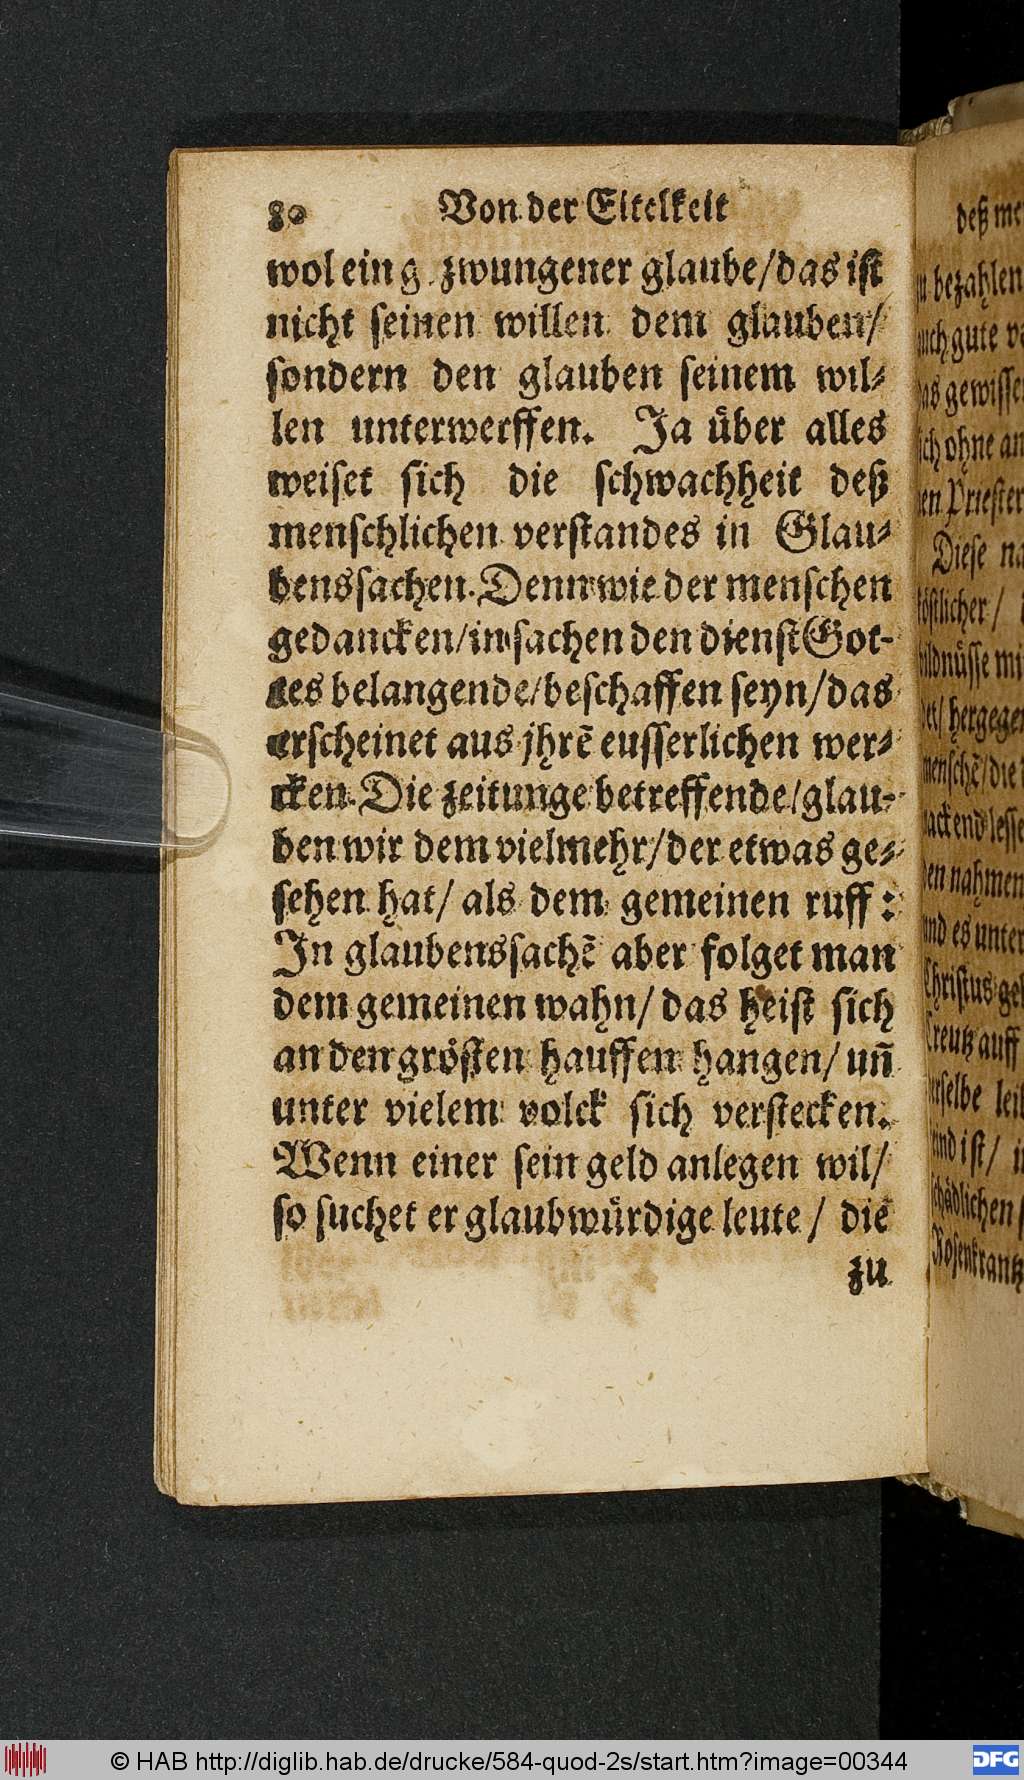 80 Von der Eitelkeit
wol ein g zwungener glaube/das ist
nicht seinen willen dem glauben/
sondern den glauben seinem wil⸗
len unterwerffen. Ja uͤber alles
weiset sich die schwachheit deß
menschlichen verstandes in Glau⸗
benssachen. Denn wie der menschen
gedancken/in sachen den dienst Got⸗
tes belangende/beschaffen seyn/das
erscheinet aus jhrẽ eusserlichen wer⸗
cken. Die zeitunge betreffende/glau⸗
ben wir dem vielmehr/der etwas ge⸗
sehen hat/ als dem gemeinen ruff:
In glaubenssachẽ aber folget man
dem gemeinen wahn/ das heist sich
an den groͤsten hauffen hangen/ uñ
unter vielem volck sich verstecken.
Wenn einer sein geld anlegen wil/
so suchet er glaubwuͤrdige leute/ die
zu
deß me
bezahlen
gute
gewisse
ohne an
Priester
Diese na
mi
hergegen
die
lesse
nahmen
es unter
Christus ge
Creutz auff
leib
ist/
Rosenkrantz
© HAB http://diglib.hab.de/drucke/584-quod-2s/start.htm?image=00344
DFG